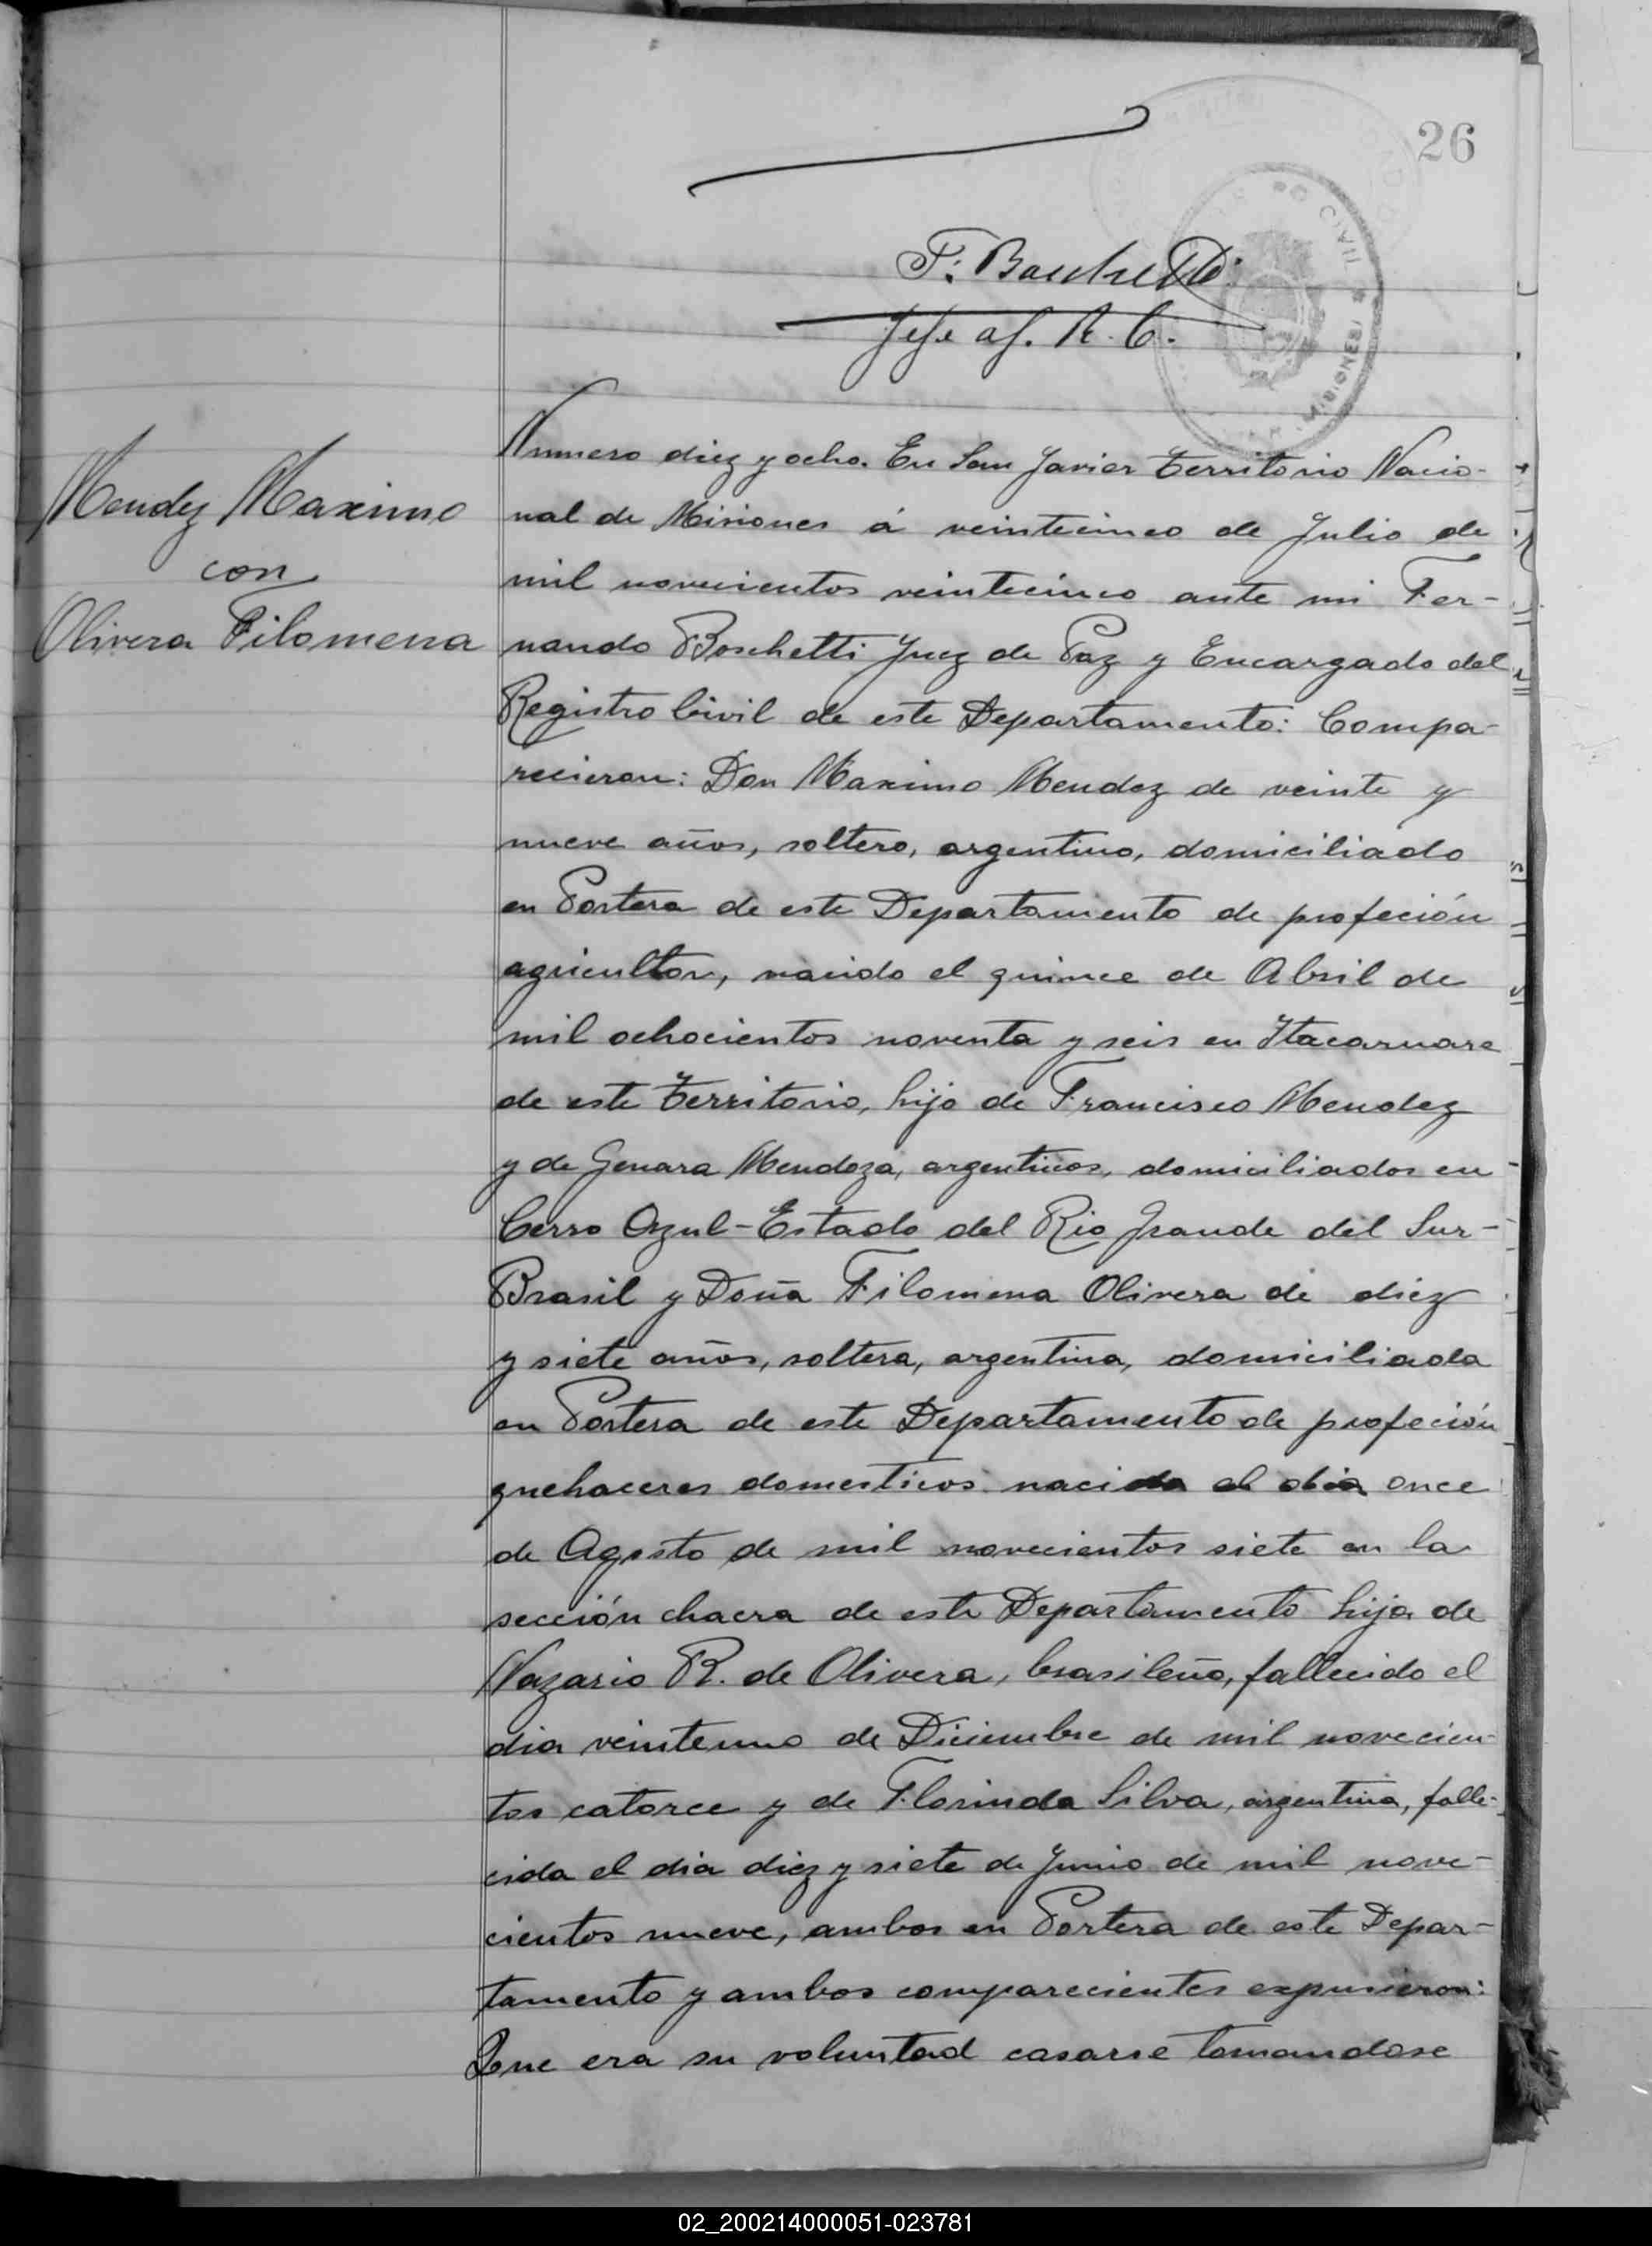 26
CIVIL
MISIONES
F. Boschetti
Jefe af. R. C.
Mendez Maximo
con
Olivera Filomena
Numero diez y ocho. En San Javier Territorio Nacio-
nal de Misiones á veinticinco de Julio de
mil novecientos veinticinco ante mi Fer-
nando Boschetti Juez de Paz y Encargado del
Registro Civil de este Departamento: Compa-
recieron: Don Maximo Mendez de veinte y
nueve años, soltero, argentino, domiciliado
en Portera de este Departamento de profeción
agricultor, nacido el quince de Abril de
mil ochocientos noventa y seis en Itacaruare
de este Territorio, hijo de Francisco Mendez
y de Genara Mendoza, argentinos, domiciliados en
Cerro Azul-Estado del Rio Grande del Sur-
Brasil y Doña Filomena Olivera de diez
y siete años, soltera, argentina, domiciliada
en Portera de este Departamento de profeción
quehaceres domesticos nacida el dia once
de Agosto de mil novecientos siete en la
sección chacra de este Departamento hija de
Nazario R. de Olivera, brasileño, fallecido el
dia veinteuno de Diciembre de mil novecien-
tos catorce y de Florinda Silva, argentina, falle-
cida el dia diez y siete de Junio de mil nove-
cientos nueve, ambos en Portera de este Depar-
tamento y ambos comparecientes expusieron:
Que era su voluntad casarse tomandose
02_200214000051-023781